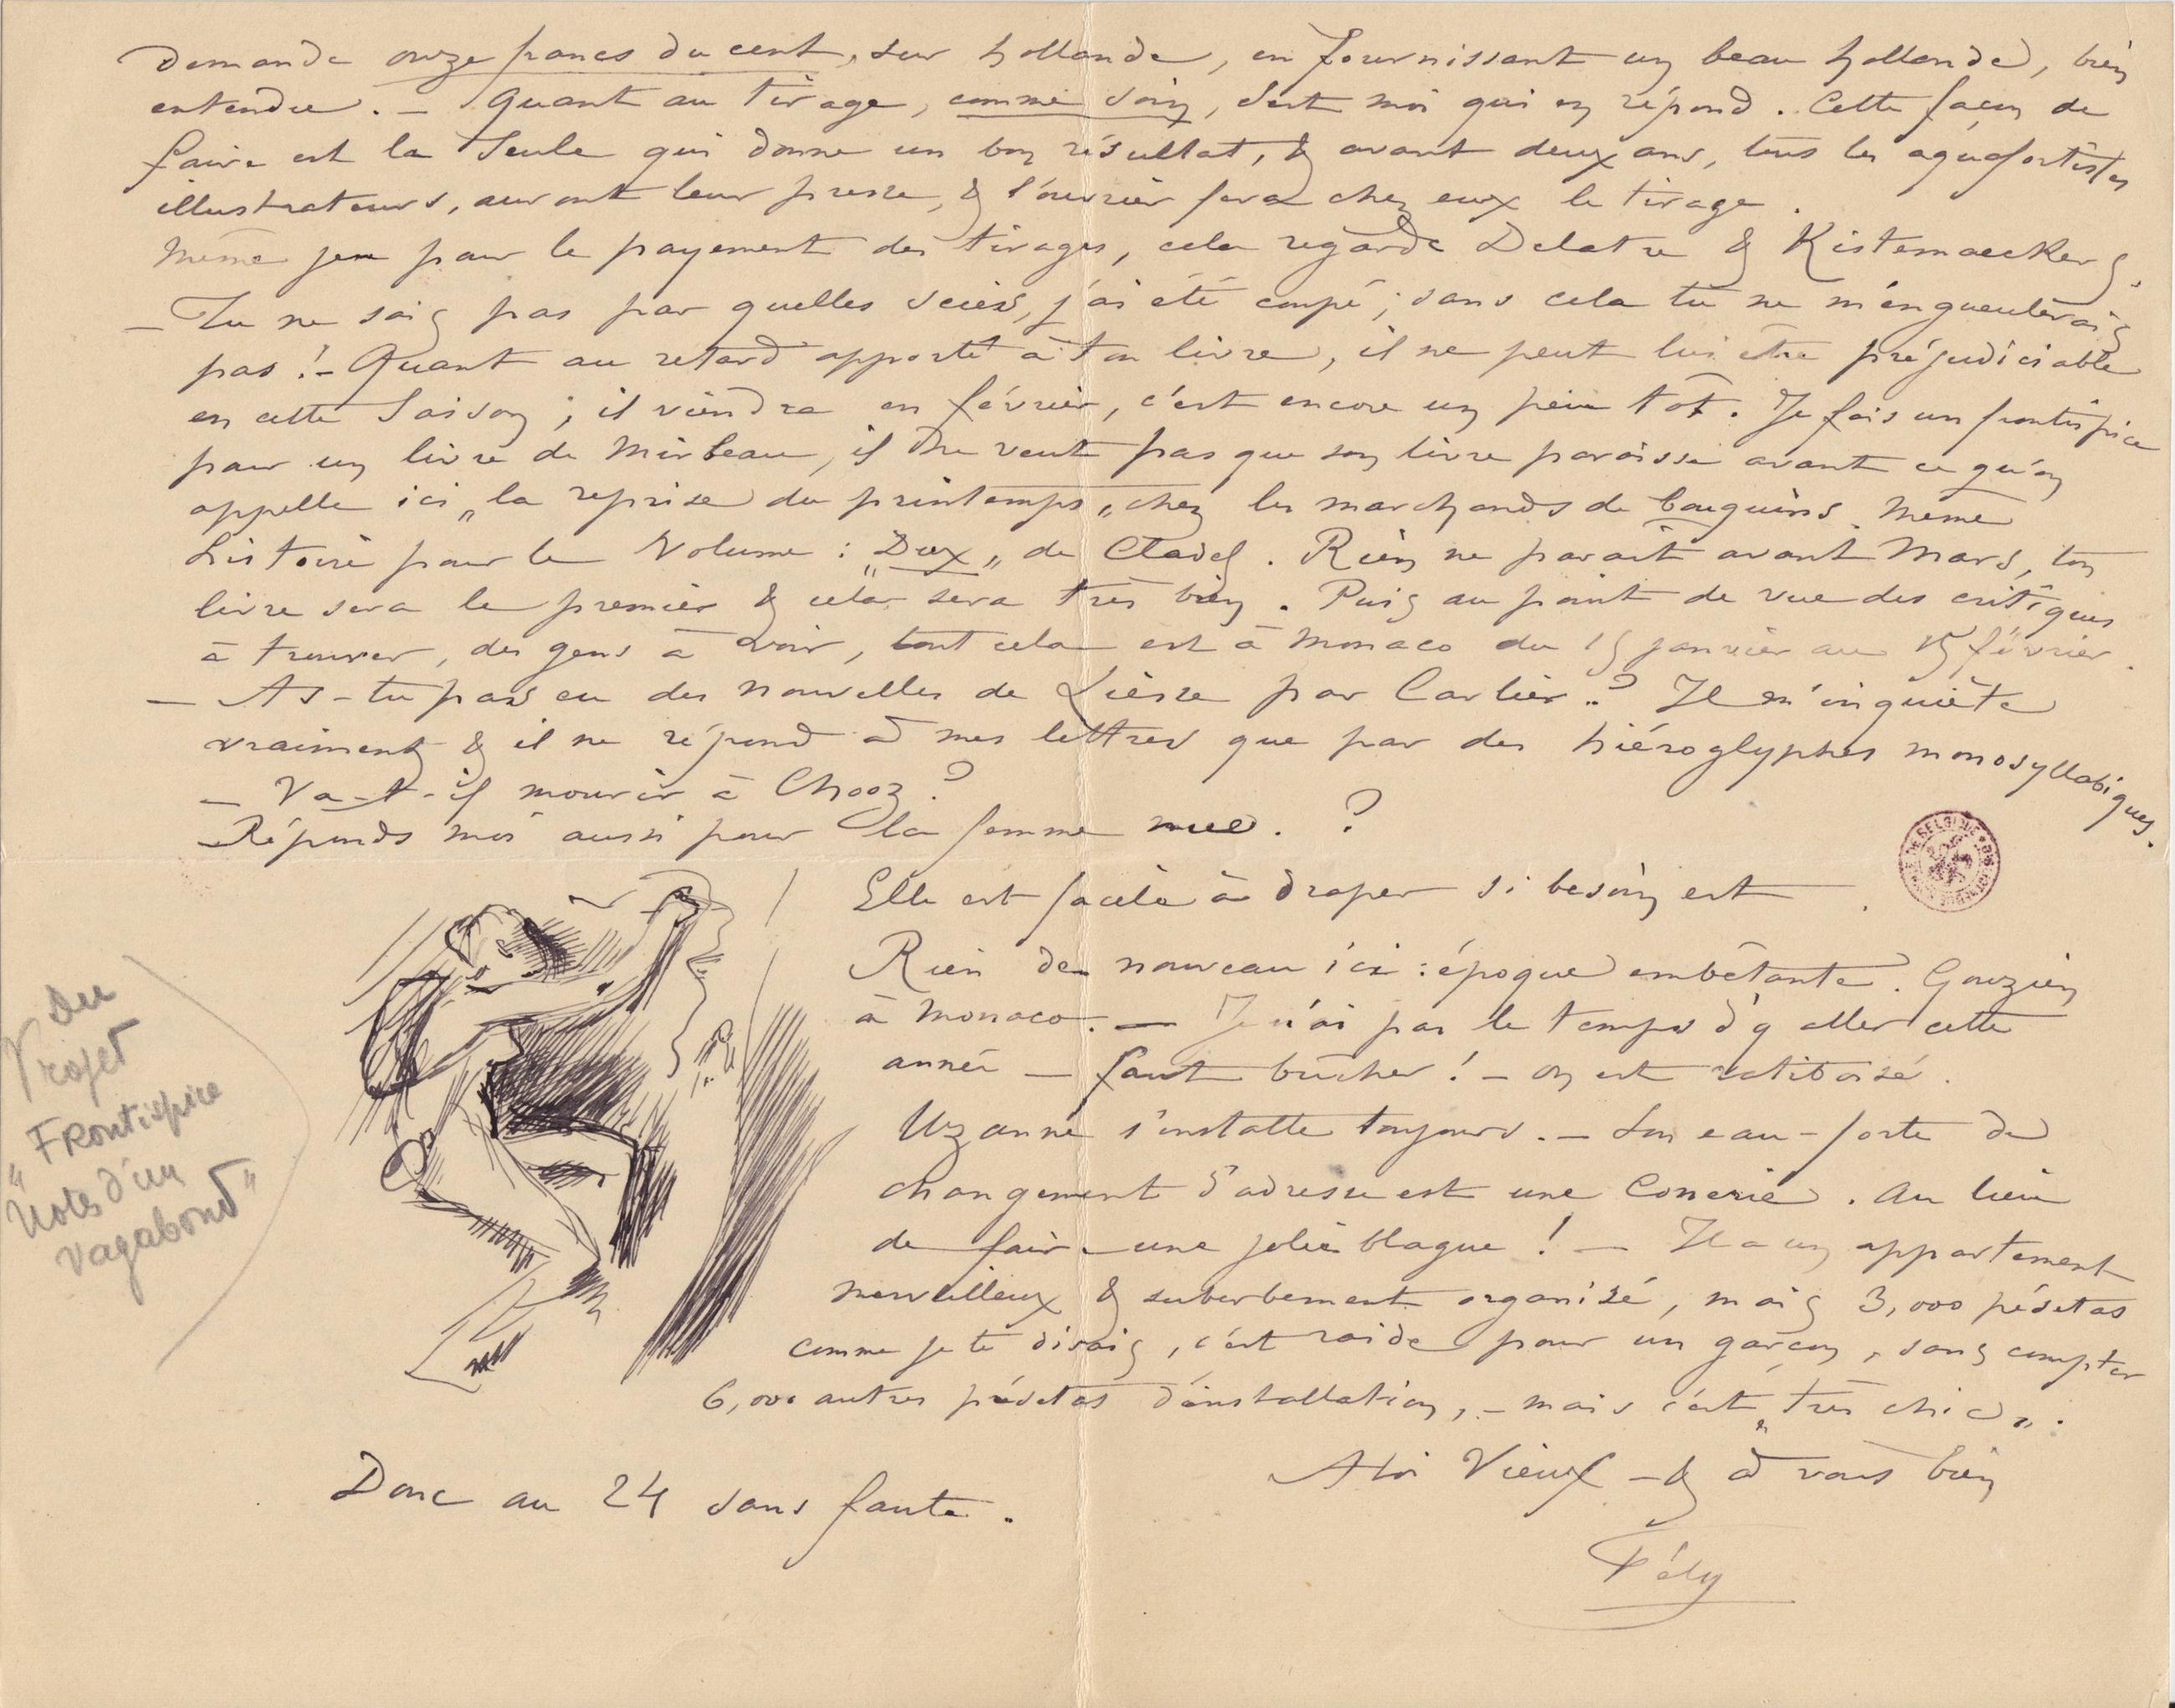 Demande onze francs du cent, sur hollande, en fournissant un beau hollande, bien
entendu. — Quant au tirage, comme soin, c'est moi qui en répond. Cette façon de
faire est la seule qui donne un bon résultat, & avant deux ans, tous les aquafortistes
illustrateurs, auront leur presse, & l'ouvrier fera chez eux le tirage.
Même jeu pour le payement des tirages, cela regarde Delatre & Kistemaeckers.
— Tu ne sais pas par quelles scies, j'ai été coupé ; sans cela tu ne m'engueulerais
pas ! — Quant au retard apporté à ton livre, il ne peut lui être préjudiciable
en cette saison ; il viendra en février, c'est encore un peu tôt. Je fais un frontispice
pour un livre de Mirbeau, il ne veut pas que son livre paraisse avant ce qu'on
appelle ici „la reprise du printemps„ chez les marchands de bouquins. Même
histoire pour le Volume : „Dux„ de Cladel. Rien ne parait avant Mars, ton
livre sera le premier & cela sera très bien. Puis au point de vue des critiques
à trouver, des gens à voir, tout cela est à Monaco du 15 janvier au 15 février.
— As-tu pas eu des nouvelles de Liesse par Carlier..? Il m'inquiète
vraiment & il ne répond à mes lettres que par des hiéroglyphes monosyllabiques.
— Va-t-il mourir à Chooz ?
— Réponds moi aussi pour la femme nue. ?
Elle est facile à draper si besoin est.
Rien de nouveau ici : époque embêtante. Gouzien
à Monaco. — Je n'ai pas le temps d'y aller cette
année — faut bûcher ! — on est ratiboisé.
Uzanne s'installe toujours. — Son eau-forte de
changement d'adresse est une Connerie. Au lieu
de faire une jolie blague ! — Il a un appartement
merveilleux & suberbement organisé, mais 3,000 pésetas
comme je te disais, c'est raide pour un garçon, sans compter
6,000 autres pésetas d'installation, — mais c'est „très chic„.
A toi Vieux — & à vous bien
Donc au 24 sans faute.
Fély
Du
Projet
"Frontispice
Notes d'un
vagabond"